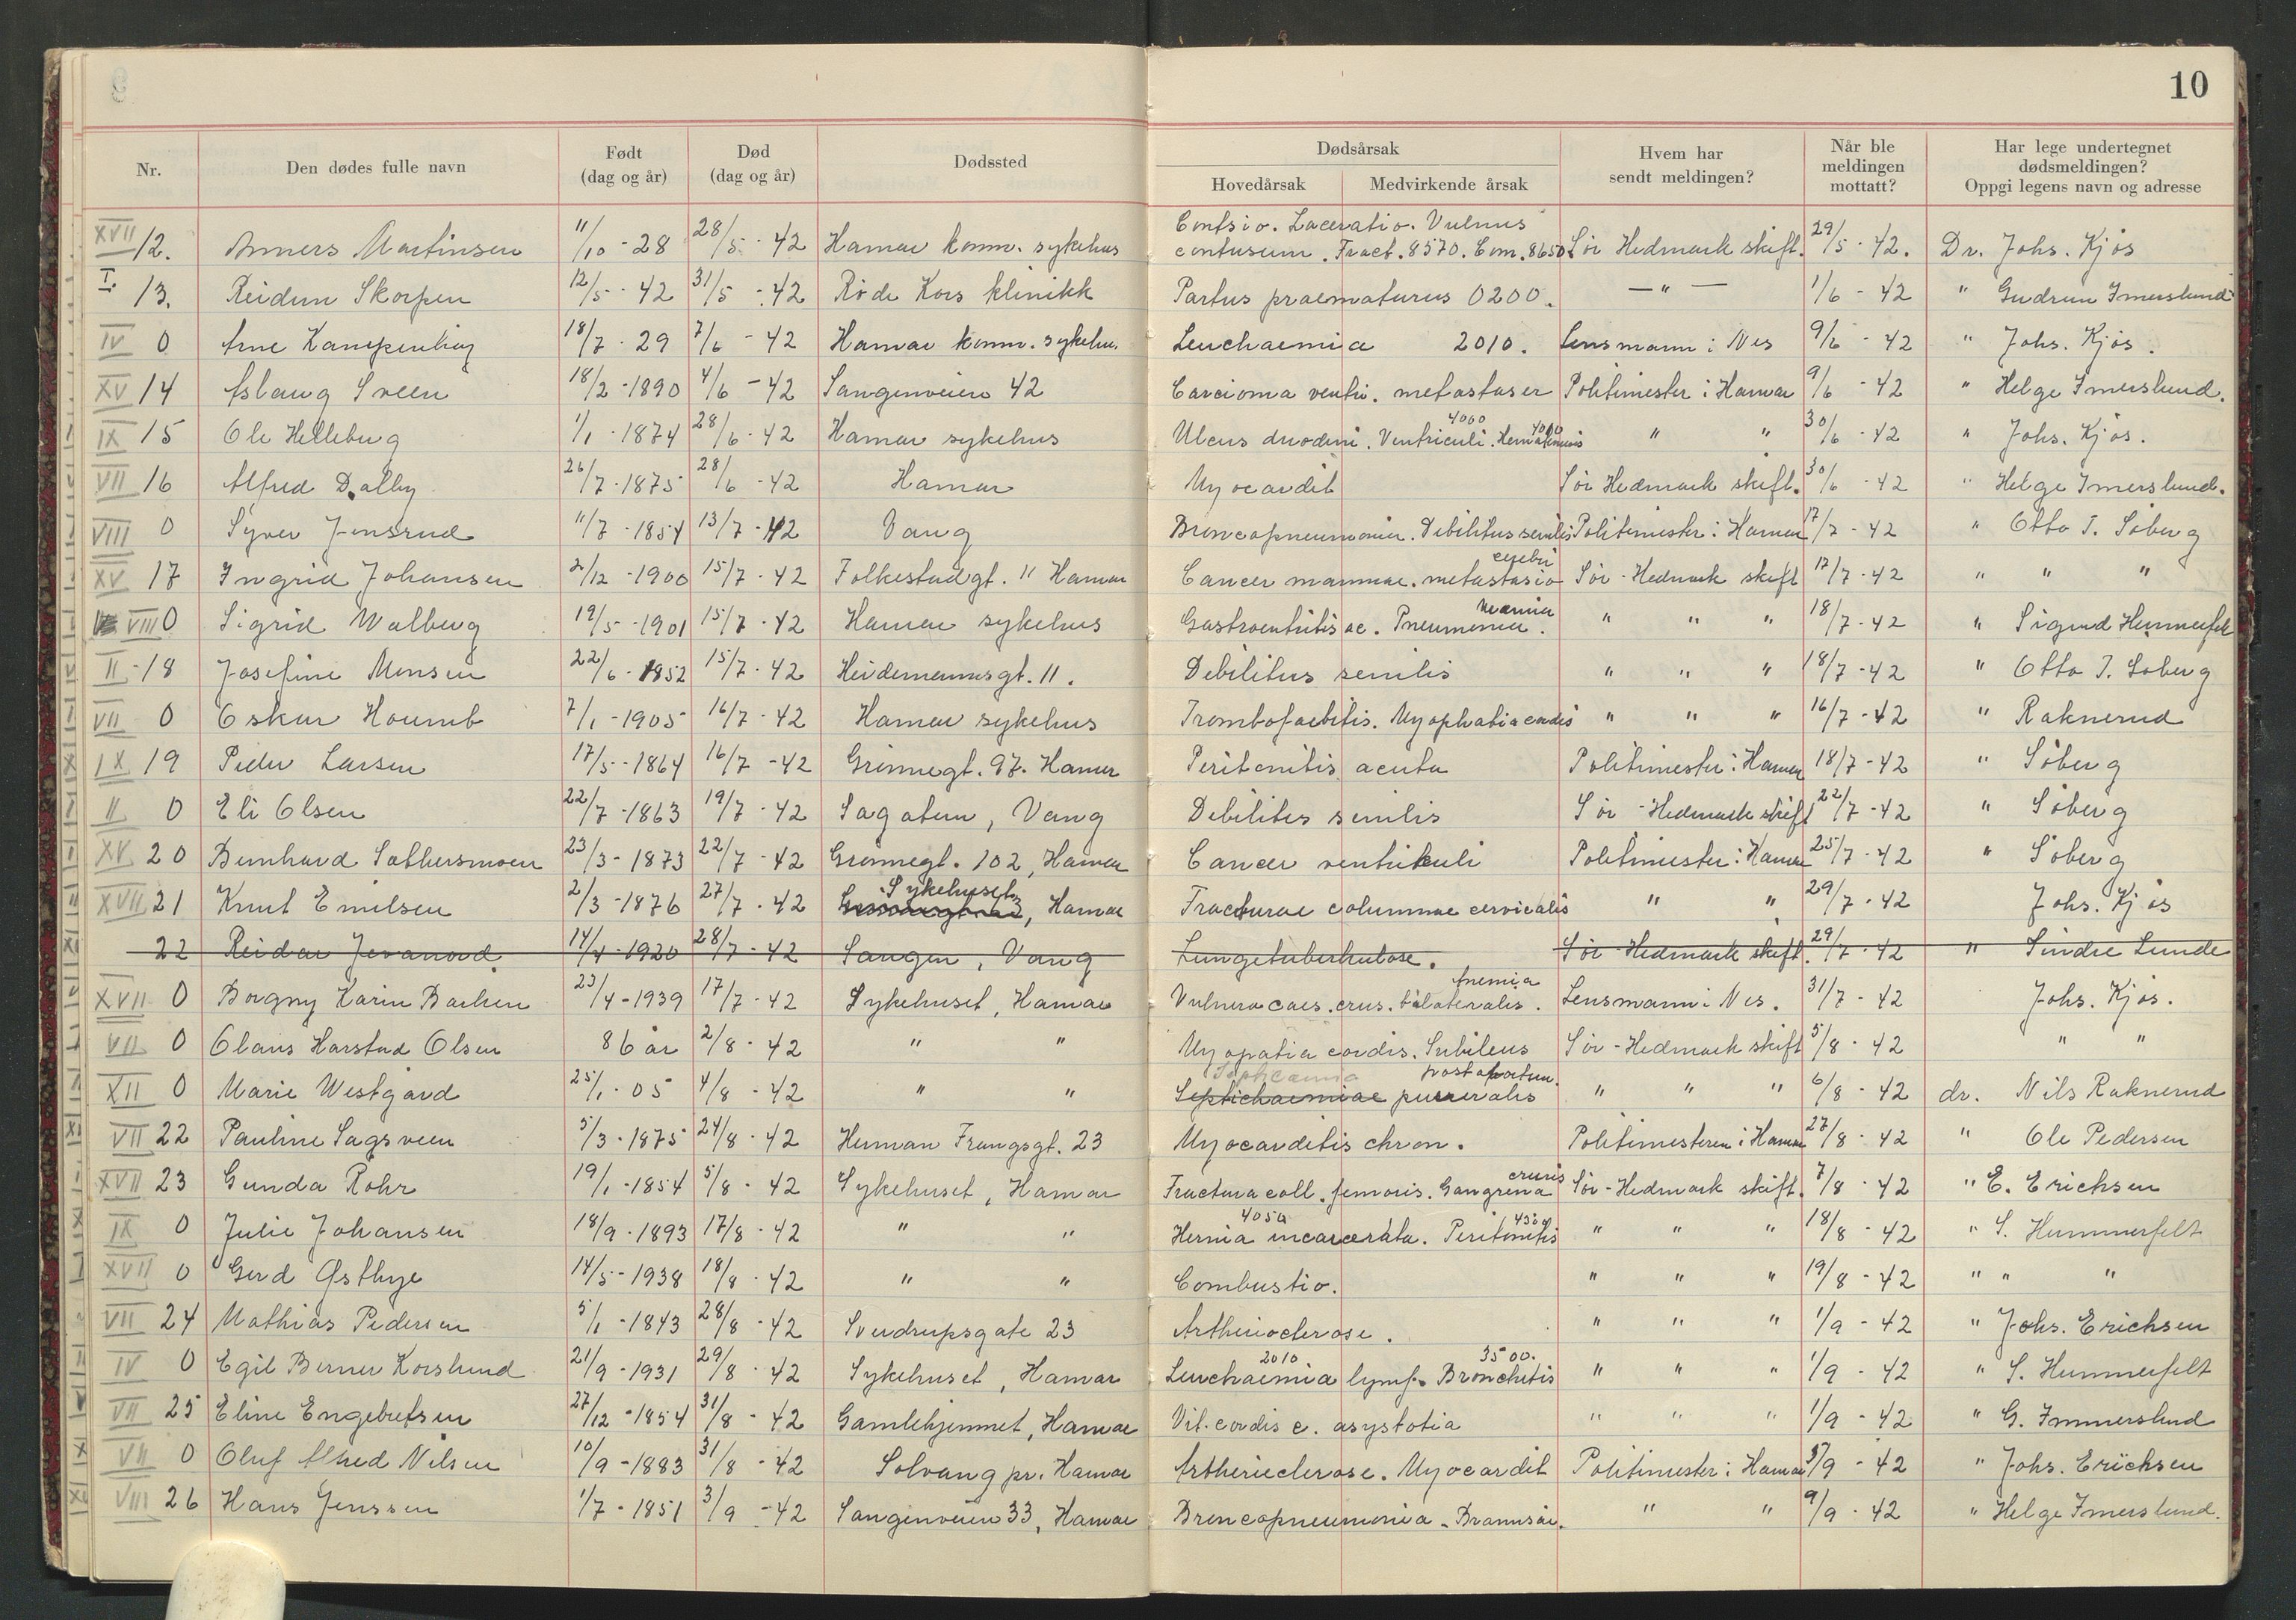 10
Nr. Den dødes fulle navn Født (dag og år) Død (dag og år) Dødssted Dødsårsak Hovedårsak Medvirkende årsak Hvem har sendt meldingen? Når ble meldingen mottatt? Har lege undertegnet dødsmeldingen? Oppgi legens navn og adresse
XVII 12. Anners Martinsen 11/10 - 28 28/5 - 42 Hamar komm. sykehus Contsio. Laceratio. Vulnus contusum. Fract. 8570. Com. 8650. Sør Hedmark skift. 29/5 - 42. Dr. Johs. Kjøs
I. 13. Reidun Skorpen 12/5 - 42 31/5 - 42 Røde Kors klinikk Partus praematurus 0200. — " — 1/6 - 42 " Gudrun Imerslund
IV 0 Arne Kampenhøy 18/7 - 29 7/6 - 42 Hamar komm. sykehu. Leuchaemia 2010. Lensmann i Nes 9/6 - 42 " Johs. Kjøs.
XV 14 Aslaug Sveen 18/2 - 1890 4/6 - 42 Sangenveien 42 Carcioma ventr. metastaser Politimester i Hamar 9/6 - 42 " Helge Imerslund.
IX 15 Ole Helleberg 1/1 - 1874 28/6 - 42 Hamar sykehus Ulcus duodeni. Ventriculi. 4000 Hematemesis 4000 " " 30/6 - 42 " Johs. Kjøs.
VII 16 Alfred Dalby 26/7 - 1875 28/6 - 42 Hamar Myocardit Sør Hedmark skift. 30/6 - 42 " Helge Imerslund.
VIII 0 Syver Jensrud 11/7 - 1854 13/7 - 42 Vang Broncopneumonia. Debilitus senilis Politimester i Hamar 17/7 - 42 " Otto T. Søberg
XV 17 Ingrid Johansen 2/12 - 1900 15/7 - 42 Folkestadgt. 11 Hamar Cancer mammae. metastasio cerebri Sør-Hedmark skift 17/7 - 42 " " "
VIII 0 Sigrid Walberg 19/5 - 1901 15/7 - 42 Hamar sykehus Gastroentritis ac. Pneumonia. Uremia " " " 18/7 - 42 " Sigurd Hummerfelt
II - 18 Josefine Monsen 22/6 - 1852 15/7 - 42 Heidemannsgt. 11. Debilitus senilis " " " 18/7 - 42 " Otto T. Søberg
VII 0 Oskar Houmb 7/1 - 1905 16/7 - 42 Hamar sykehus Trombofaebitis. Myophatia cordis " " " 16/7 - 42 " Raknerud
IX 19 Peder Larsen 17/5 - 1864 16/7 - 42 Grønnegt. 97. Hamar Peritonitis acuta Politimester i Hamar 18/7 - 42 " Søberg
II 0 Eli Olsen 22/7 - 1863 19/7 - 42 Sagatun, Vang Debilites senilis Sør-Hedmark skift 22/7 - 42 " Søberg
XV 20 Bernhard Sæthersmoen 23/3 - 1873 22/7 - 42 Grønnegt. 102, Hamar Cancer ventrikuli Politimester i Hamar 25/7 - 42 " Søberg
XVII 21 Knut Emilsen 2/3 - 1876 27/7 - 42 Sykehuset, Hamar Fracturae columnae cervicalis " " 29/7 - 42 Johs. Kjøs
22 Reidar Jevanord 14/4 - 1920 28/7 - 42 Sangen, Vang Lungetuberkulose. Sør-Hedmark skift. 29/7 - 42 " Sindre Lunde
XVII 0 Borgny Karin Barken 23/4 - 1939 17/7 - 42 Sykehuset, Hamar Vulnera caes. crus. bilateralis. Anemia Lensmann i Nes. 31/7 - 42 Johs. Kjøs.
VII 0 Olaus Harstad Olsen 86 år 2/8 - 42 " " Myopatia cordis. Subileus Sør-Hedmark skift 5/8 - 42 " "
XII 0 Marie Westgård 25/1 - 05 4/8 - 42 " " Septicaemia post partum. Septichaemiae pureralis " " " 6/8 - 42 dr. Nils Raknerud
VII 22 Pauline Sagsveen 5/3 - 1875 24/8 - 42 Herman Frangsgt. 23 Myocarditis chron. Politimesteren i Hamar 27/8 - 42 " Ole Pedersen
XVII 23 Gunda Rohr 19/1 - 1854 5/8 - 42 Sykehuset, Hamar Fractura coll. femoris. Gangrena cruris Sør-Hedmark skift. 7/8 - 42 " E. Erichsen
IX 0 Julie Johansen 18/9 - 1893 17/8 - 42 " " Hernia incarcerata. Peritonitis " " " 18/8 - 42 " S. Hummerfelt
XVII 0 Gerd Østbye 14/5 - 1938 18/8 - 42 " " Combustio. " " " 19/8 - 42 " " "
VII 24 Mathias Pedersen 5/1 - 1843 28/8 - 42 Sverdrupsgate 23 Artheriocterose. " " " 1/9 - 42 " Johs. Erichsen
IV 0 Egil Berner Korslund 21/9 - 1931 29/8 - 42 Sykehuset, Hamar Leuchaemia 2010 lymf. Bronchitis 3500. " " " 1/9 - 42 " S. Hummerfelt
VII 25 Eline Engebretsen 27/12 - 1854 31/8 - 42 Gamlehjemmet, Hamar Vit. cordis c. asystotia " " " 1/9 - 42 " G. Immerslund
VII 0 Oluf Alfred Nilsen 10/9 - 1883 31/8 - 42 Solvang pr. Hamar Artherieclerose. Myocardit Politimester i Hamar /9 - 42 " Johs. Erichsen
VIII 26 Hans Jenssen 1/7 - 1851 3/9 - 42 Sangenveien 33, Hamar Broncopneumonia - 9/9 - 42 " Helge Imerslund.